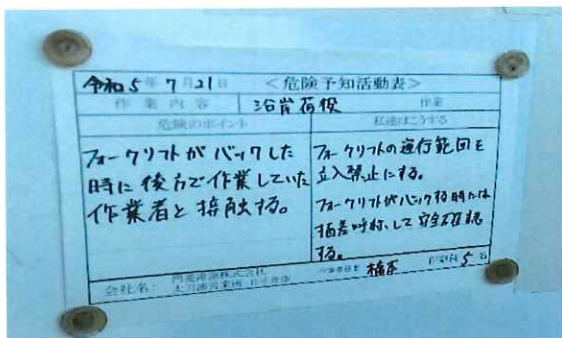 令和5年7月21日 <危険予知活動表>
作業内容 沿岸荷役 作業
危険のポイント 私達はこうする
フォークリフトがバックした
時に後方で作業していた
作業者と接触する。
フォークリフトの運行範囲を
立入禁止にする。
フォークリフトがバックする時には
指差呼称して安全確認
する。
会社名: 株式会社
5名